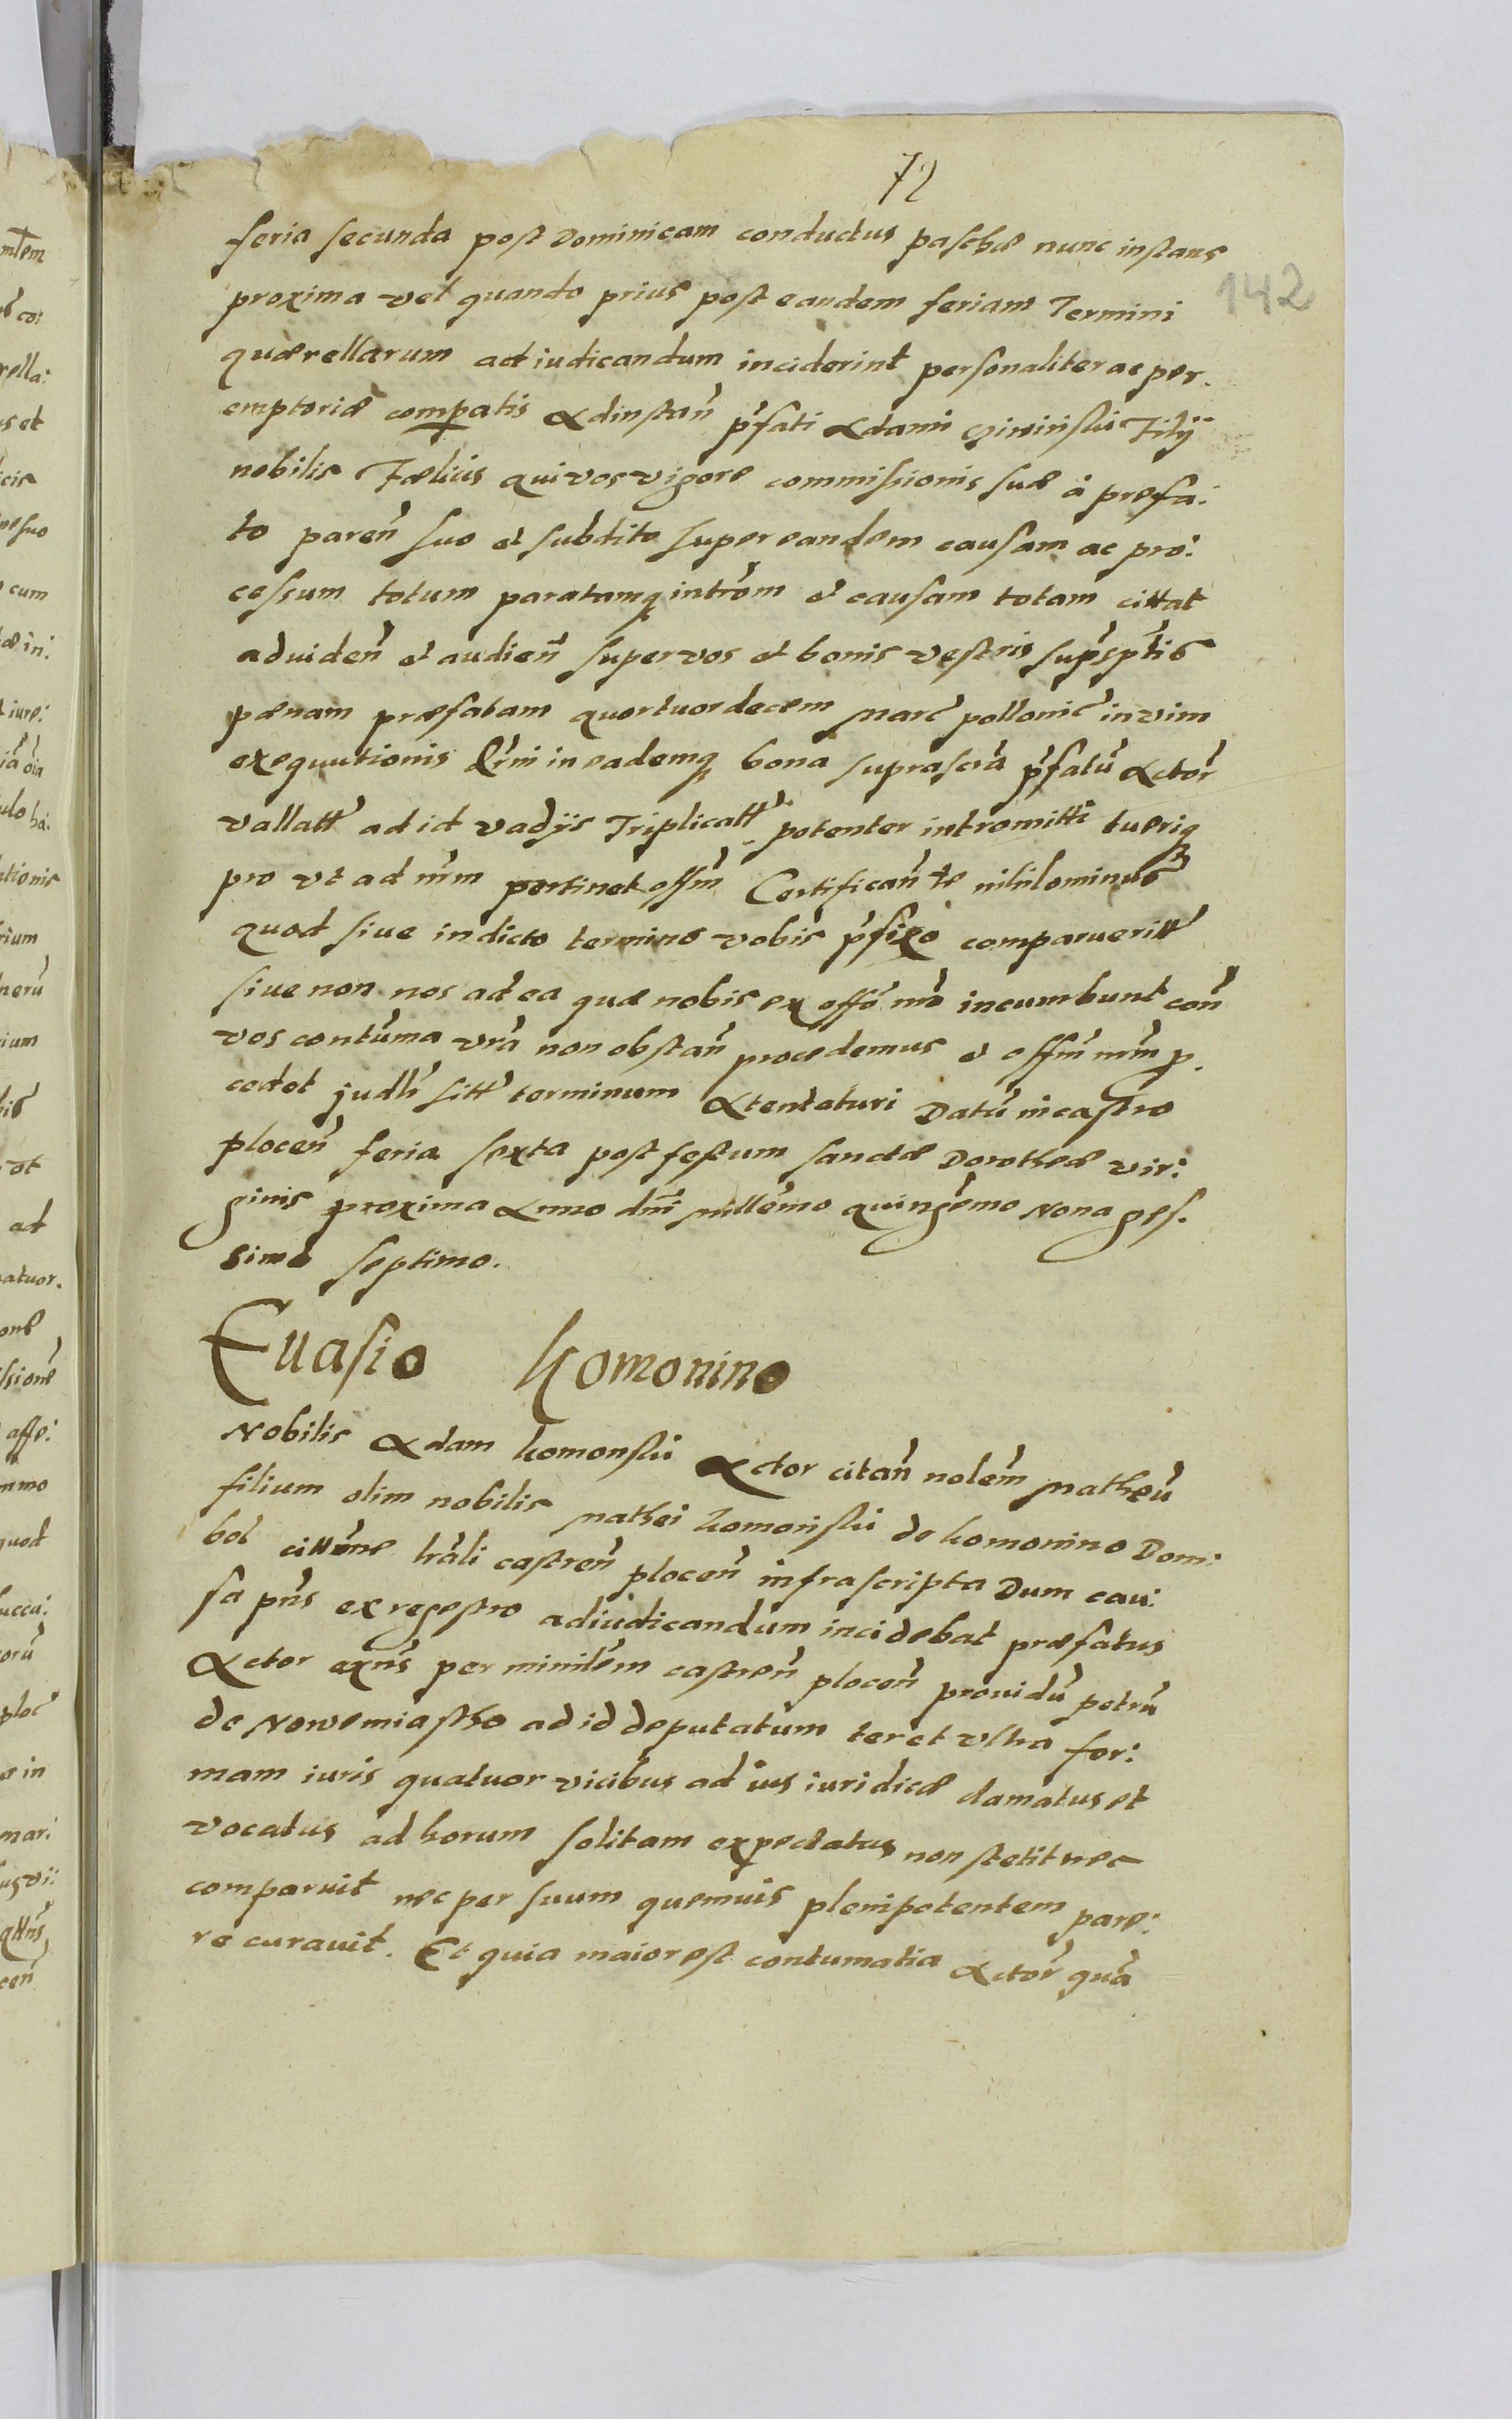 72
142
feria secunda post Dominicam conductus paschæ nunc instans
proxima vel quando prius post eandem feriam Termini
quærellarum ad iudicandum inciderint personaliter ac per.
emptoriæ compatis Adinstañ pfati Adami Filÿ
nobilis Fælius qui vos vigore commissionis suæ à præfa:
to pareñ suo et subdito super eandem causam ac pro:
cessum totum paratamq introm et causam totam cittat
ad videñ et audieñ super vos et bonis vestris
pænam præfatam quortuordecem marc pollonic in vim
exequutionis in eademq bona suprascra pfatu Actor
vallatt ad id vadÿs Triplicatt potenter intromitti tueriq
pro vt ad nrm pertinet offm Certificañ te nihilominus
quod siue in dicto termino vobis pfixo comparueritt
siue non nos ad ea quæ nobis ex offo nro incumbunt con
vos contuma vra non obstañ procedemus et offm nrm p.
cedet judli sitt terminum Attentaturi Datu in castro
ploceñ feria sexta post festum sanctæ Dorotheæ vir:
ginis proxima Anno dni millemo quingemo Nona ges.
simo septimo.
Euasio Komonino
Nobilis Adam komonski Actor citañ nolem matheu
filium olim nobilis mathei komonski de komonino Dom:
bol cittõne lrali castreñ ploceñ infrascripta Dum cau:
sa pns ex regestro adiudicandum incidebat præfatus
Actor exns per minilem castreñ ploceñ prouidu petru
de Nowemiastho ad id deputatum ter et vltra for:
mam iuris quatuor vicibus ad ius iuridicæ clamatus et
vocatus ad horum solitam expectatus non stetit nec
comparuit nec per suum quemuis plenipotentem pare:
re curauit. Et quia maior est contumatia Actor qua